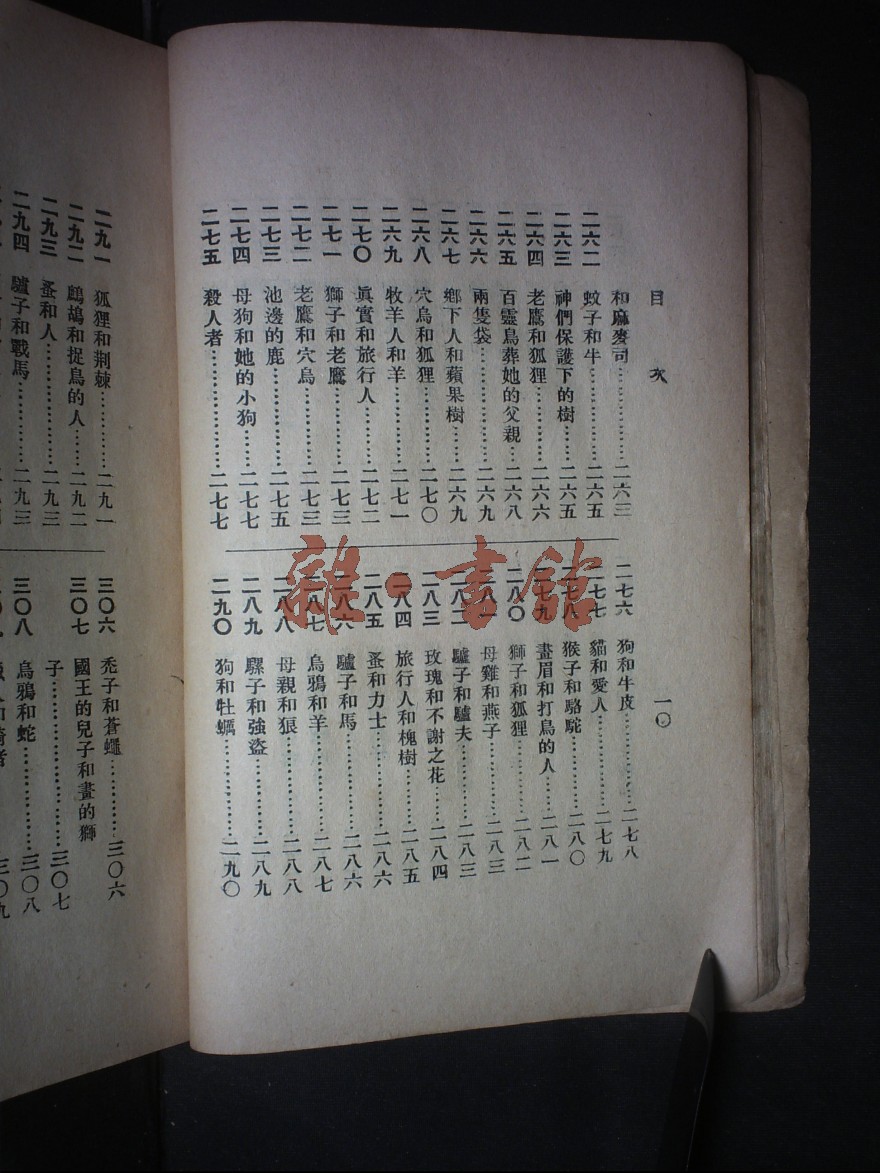 目次 一〇
和麻麥司…………二六三
二六二 蚊子和牛…………二六五
二六三 神們保護下的樹…………二六五
二六四 老鷹和狐狸…………二六六
二六五 百靈鳥葬她的父親…………二六八
二六六 兩隻袋…………二六九
二六七 鄉下人和蘋果樹…………二六九
二六八 穴烏和狐狸…………二七〇
二六九 牧羊人和羊…………二七一
二七〇 眞實和旅行人…………二七二
二七一 獅子和老鷹…………二七三
二七二 老鷹和穴烏…………二七三
二七三 池邊的鹿…………二七五
二七四 母狗和她的小狗…………二七七
二七五 殺人者…………二七七
二七六 狗和牛皮…………二七八
二七七 貓和愛人…………二七九
二七八 猴子和駱駝…………二八〇
二七九 畫眉和打鳥的人…………二八一
二八〇 獅子和狐狸…………二八二
二八一 母雞和燕子…………二八三
二八二 驢子和驢夫…………二八三
二八三 玫瑰和不謝之花…………二八四
二八四 旅行人和槐樹…………二八五
二八五 蚤和力士…………二八六
二八六 驢子和馬…………二八六
二八七 烏鴉和羊…………二八七
二八八 母親和狼…………二八八
二八九 騾子和強盜…………二八九
二九〇 狗和牡蠣…………二九〇
雜·書館
二九一 狐狸和荆棘…………二九一
二九二 鷓鴣和捉鳥的人…………二九二
二九三 蚤和人…………二九三
二九四 驢子和戰馬…………二九三
三〇六 禿子和蒼蠅…………三〇六
三〇七 國王的兒子和畫的獅
子…………三〇七
三〇八 烏鴉和蛇…………三〇八
三〇九